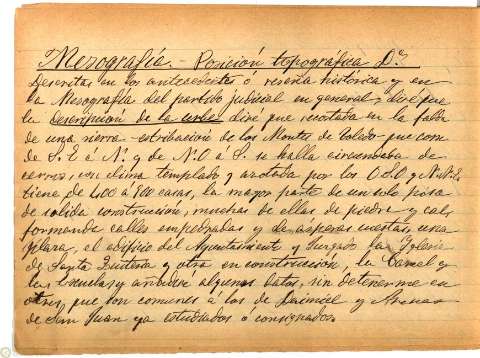 Mesografía.- Posición topográfica Da
Descritas en los antecedentes ó reseña histórica y en
la Mesografía del partido judicial en general, diré que
la descripción de la urbe: diré que recostada en la falda
de una sierra - estribación de los Montes de Toledo - que corre
de S.E á N. y de N.O á S. se halla circundada de
cerros, con clima templado y azotada por los O.S.O y N.N.E,
tiene de 600 á 700 casas, la mayor parte de un solo piso
de solida construcción, muchas de ellas de piedra y cal,
formando calles empedradas y de ásperas cuestas, una
plaza, el edificio del Ayuntamiento y Juzgado la Iglesia
de Santa Quiteria y otra en construcción, la Carcel y
las Escuelas y añadiré algunos datos, sin detenerme en
otros, que son comunes á los de Daimiel y Arenas
de San Juan ya estudiados ó consignados.